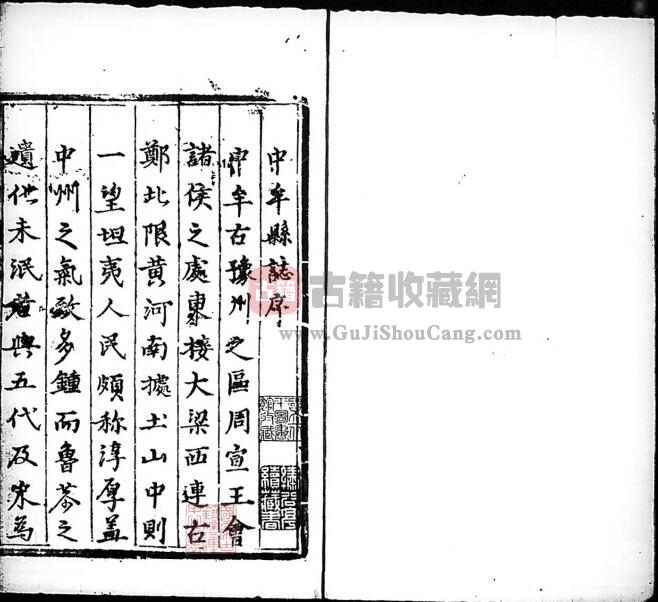 中牟縣誌序
中牟古豫州之區周宣王會
諸侯之處東接大梁西連古
鄭北限黃河南據土山中則
一望坦夷人民頗称淳厚蓋
中州之氣多鍾而魯恭之
遺化未泯與五代及宋為
古籍收藏網
www.GuJiShouCang.com